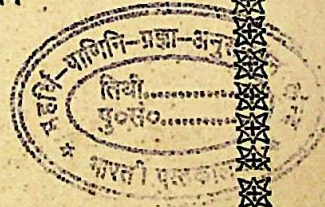 महर्षि-पाणिनि-प्रज्ञा-अनु
तिथी..............
पु०सं०..............
* भारती पुस्तका